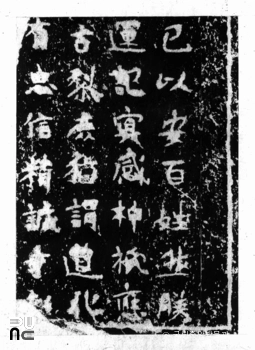 己以安百姓然朕
運記冥感神祇應
古黎庶猶謂道化
有忠信精誠